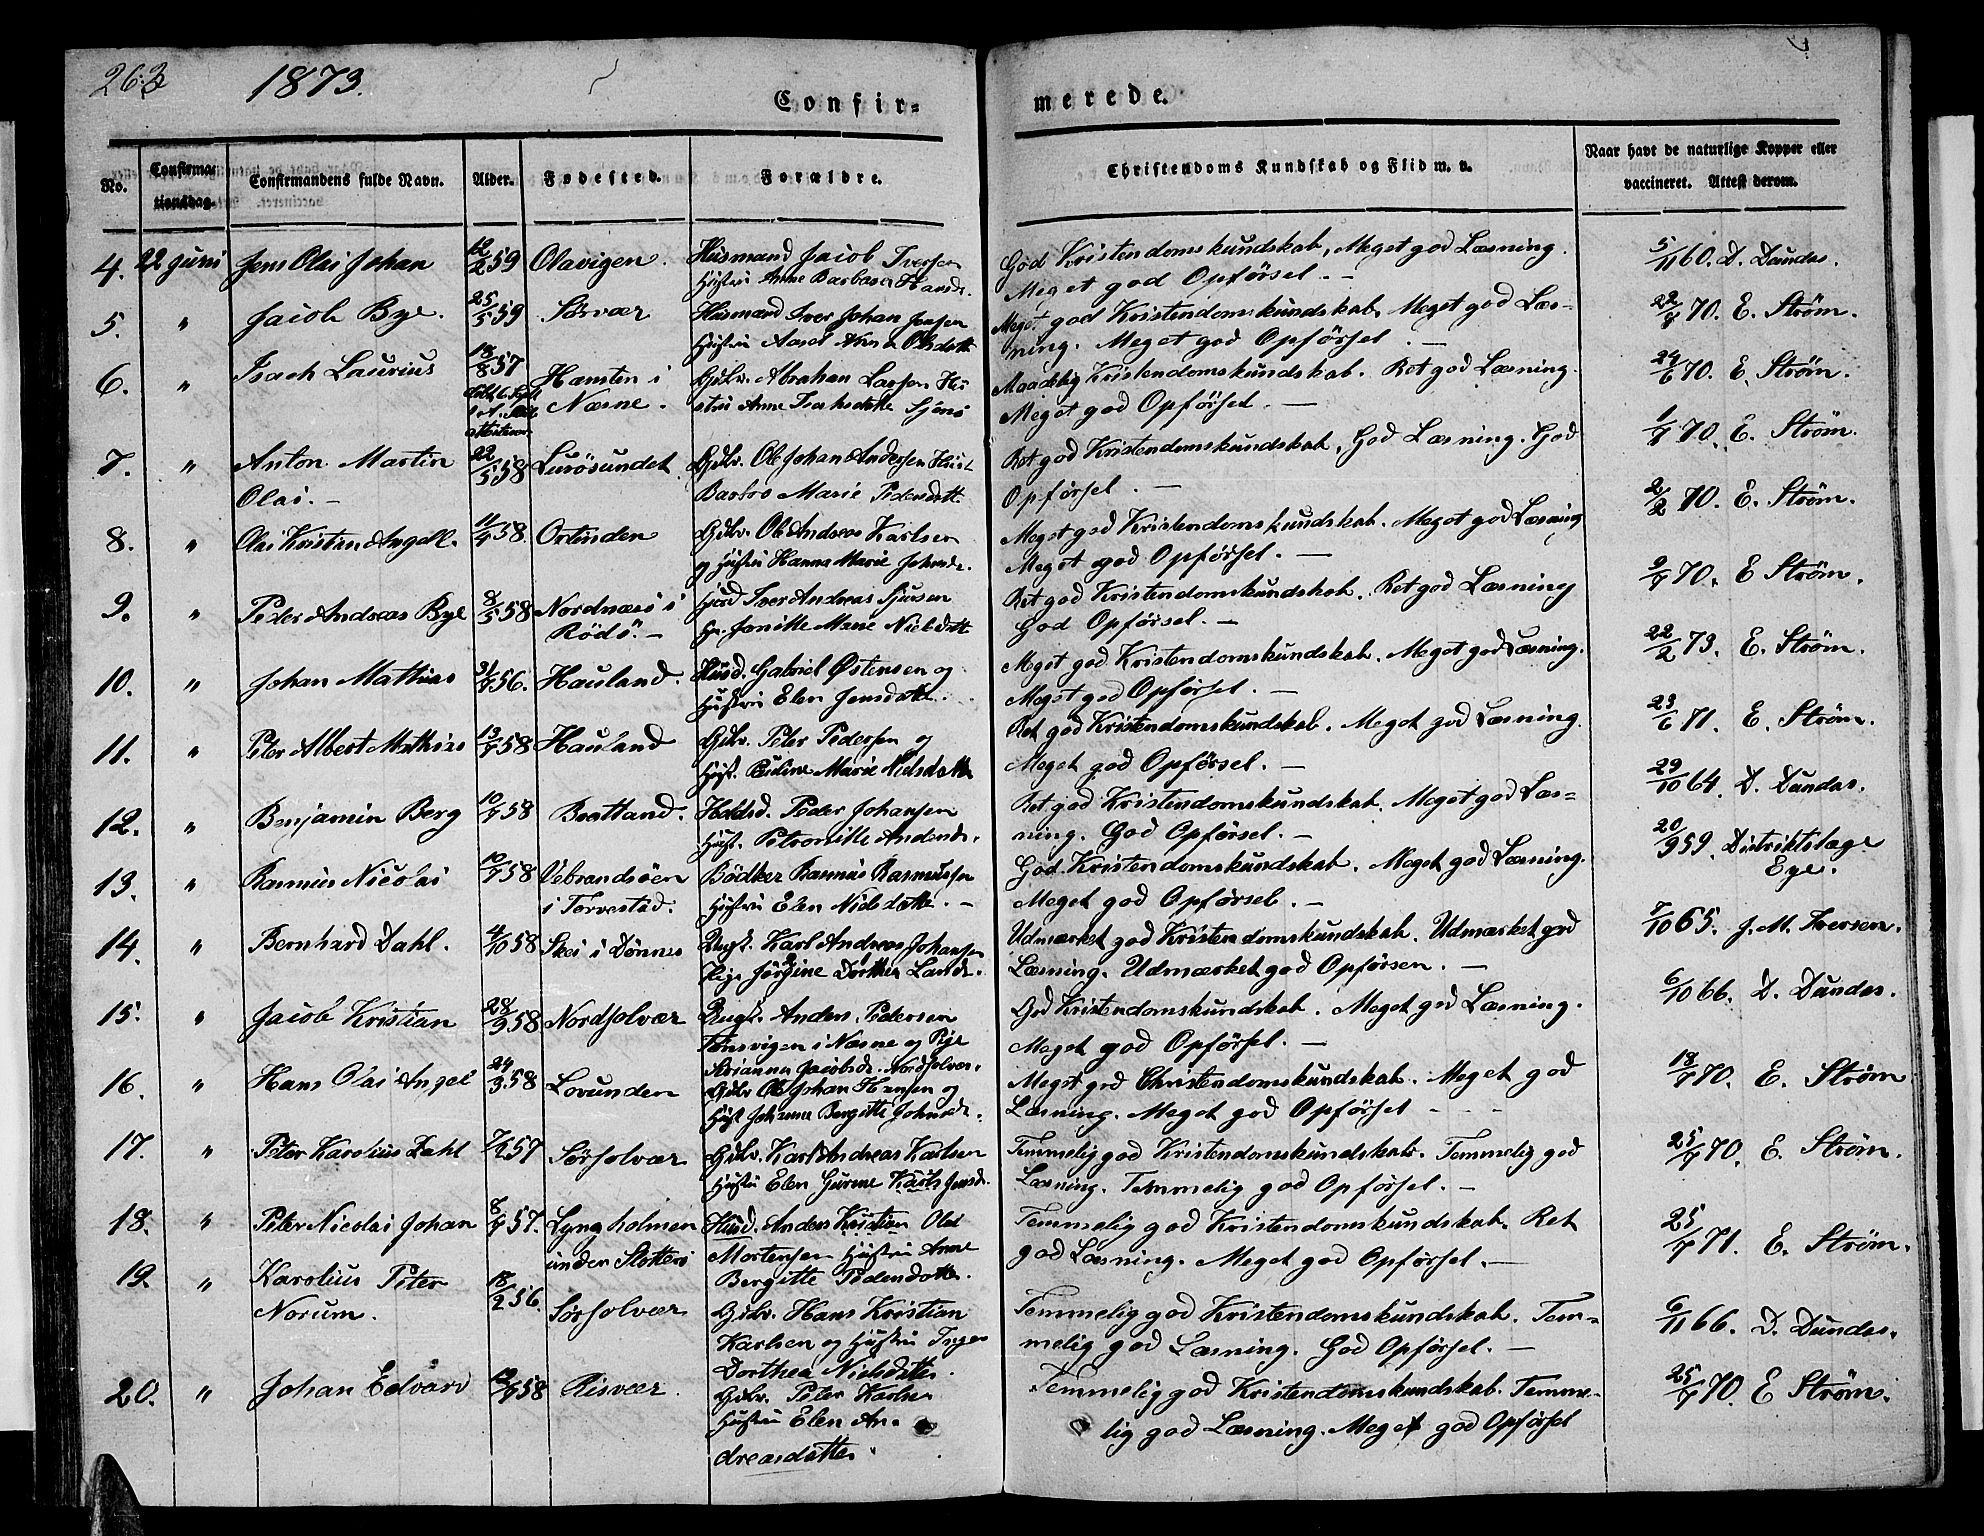 263
1873.
Confir=
merede.
No.
Confirma-
tionsdag.
Confirmandens fulde Navn.
Alder.
Fødested.
Forældre.
Christendoms Kundskab og Flid m. v.
Naar havt de naturlige Kopper eller
vaccineret. Attest derom.
4. 22 Juni Jens Olai Johan 12/2 59 Olavigen. Husmand Jacob Iversen
Hustru Anne Barbara Hansd.
God Kristendomskundskab, Meget god Læsning.
Meget god Opførsel. —
5/11 60. D. Dundas.
5. " Jacob Bye. 25/5 59 Sørvær Husmand Iver Johan Jensen
Hustru Aasel Anna Olsdatt
Meget god Kristendomskundskab. Meget god Læs-
ning. Meget god Opførsel. —
70. E. Strøm.
6. " Isach Laurius 18/8 57 Hamsten i
Næsne.
Gdbr. Abrahan Larsen Hu
stru Anne Isaksdatte
Maadelig Kristendomskundskab. Ret god Læsning.
Meget god Opførsel. —
24/6 70. E. Strøm.
7. " Anton Martin
Olai. —
22/5 58 Lurösundet Gdbr. Ole Johan Andersen Hust
Barbro Marie Pedersdatt.
Ret god Kristendomskundskab, God Læsning. God
Opførsel. —
1/7 70. E. Strøm.
8. " Olai Kristian Angell. 58. Ortinden Gdbr. Ole Andreas Karlsen
og Hustru Hanna Marie Johnsd.
Meget god Kristendomskundskab. Meget god Læsning
Meget god Opførsel. —
2/2 70. E. Strøm.
9. " Peder Andreas Bye 8/5 58 Nordnæsö i
Rödö. —
Iver Andreas Sjursen
Hu. Jonille Marie Nielsdatt
Ret god Kristendomskundskab. Ret god Læsning
God Opførsel. —
9/7 70. E Strøm.
10. " Johan Mathias 31/7 56. Hauland. Husd. Gabriel Østensen og
Hustru Elen Jensdatte.
Meget god Kristendomskundskab. Meget god Læsning.
Meget god Opførsel. —
22/2 73. E. Strøm.
11. " Peter Albert Mathias 13/7 58 Hauland Gdbr. Peter Pedersen og
Hust. Paulina Marie Nielsdatte
Ret god Kristendomskundskab. Meget god Læsning.
Meget god Opførsel. —
23/6 71. E. Strøm.
12. " Benjamin Berg 10/7 58 Bratland. Peder Johansen
Hust. Petronille Andersd.
Ret god Kristendomskundskab. Meget god Læs=
ning. God Opførsel. —
29/10 64. D. Dundas.
13. " Rasmus Nicolai 10/7 58 Vebrandsöen
i Torvestad.
Bödker Rasmus Rasmussen
Hustru Elen Nielsdatte. —
God Kristendomskundskab. Meget god Læsning.
Meget god Opførsel. —
20/9 59. Distriktslæge
Eye.
14. " Bernhard Dahl. 4/10 58 Skei i Dönnes Ungk. Karl Andreas Johansen
Pige Jörgine Dorthea Larsd.
Udmærket god Kristendomskundskab. Udmærket god
Læsning. Udmærket god Opførsen. —
7/10 65. J. M. Iversen.
15. " Jacob Kristian 28/9 58 Nordsolvær Ungk. Anders Pedersen
Tonsvigen i Næsne og Pige
Arianna Jacobsd. Nordsolvær.
God Kristendomskundskab. Meget god Læsning.
Meget god Opførsel. —
6/10 66. D. Dundas.
16. " Hans Olai Angel 24/3 58 Lovunden Gdbr Ole Johan Hansen og
Hust Johanna Bergitte Johnsd.
Meget god Christendomskundskab. Meget god
Læsning. Meget god Opførsel - - -
18/7 70. E. Strøm
17. " Peter Karolius Zahl 57 Sørsolvær Gdbr. Karl Andreas Karlsen
Hustru Elen Gurine Karls Jensd.
Temmelig god Kristendomskundskab. Temmelig god
Læsning. Temmelig god Opførsel. —
25/7 70. E. Strøm.
18. " Peter Nicolai Johan 8/7 57. Lyngholmen
under Slotterö
Husd. Anders Kristian Olai
Mortensen Hustru Anne
Bergitte Pedersdatte.
Temmelig god Kristendomskundskab. Ret
god Læsning. Meget god Opførsel. —
25/7 71. E. Strøm.
19 " Karolius Peter
Norum.
18/2 56. Sørsolvær Gdbr. Hans Kristian
Karlsen og Hustru Inger
Dorthea Nielsdatte.
Temmelig god Kristendomskundskab. Tem=
melig god Læsning. God Opførsel. —
6/11 66. D. Dundas.
20. " Johan Edvard 58 Risvær. Gdbr. Peter Karlsen
Hustru Elen An-
dreasdatte.
Temmelig god Kristendomskundskab. Temme-
lig god Læsning. Meget god Opførsel
25/7 70. E Strøm.